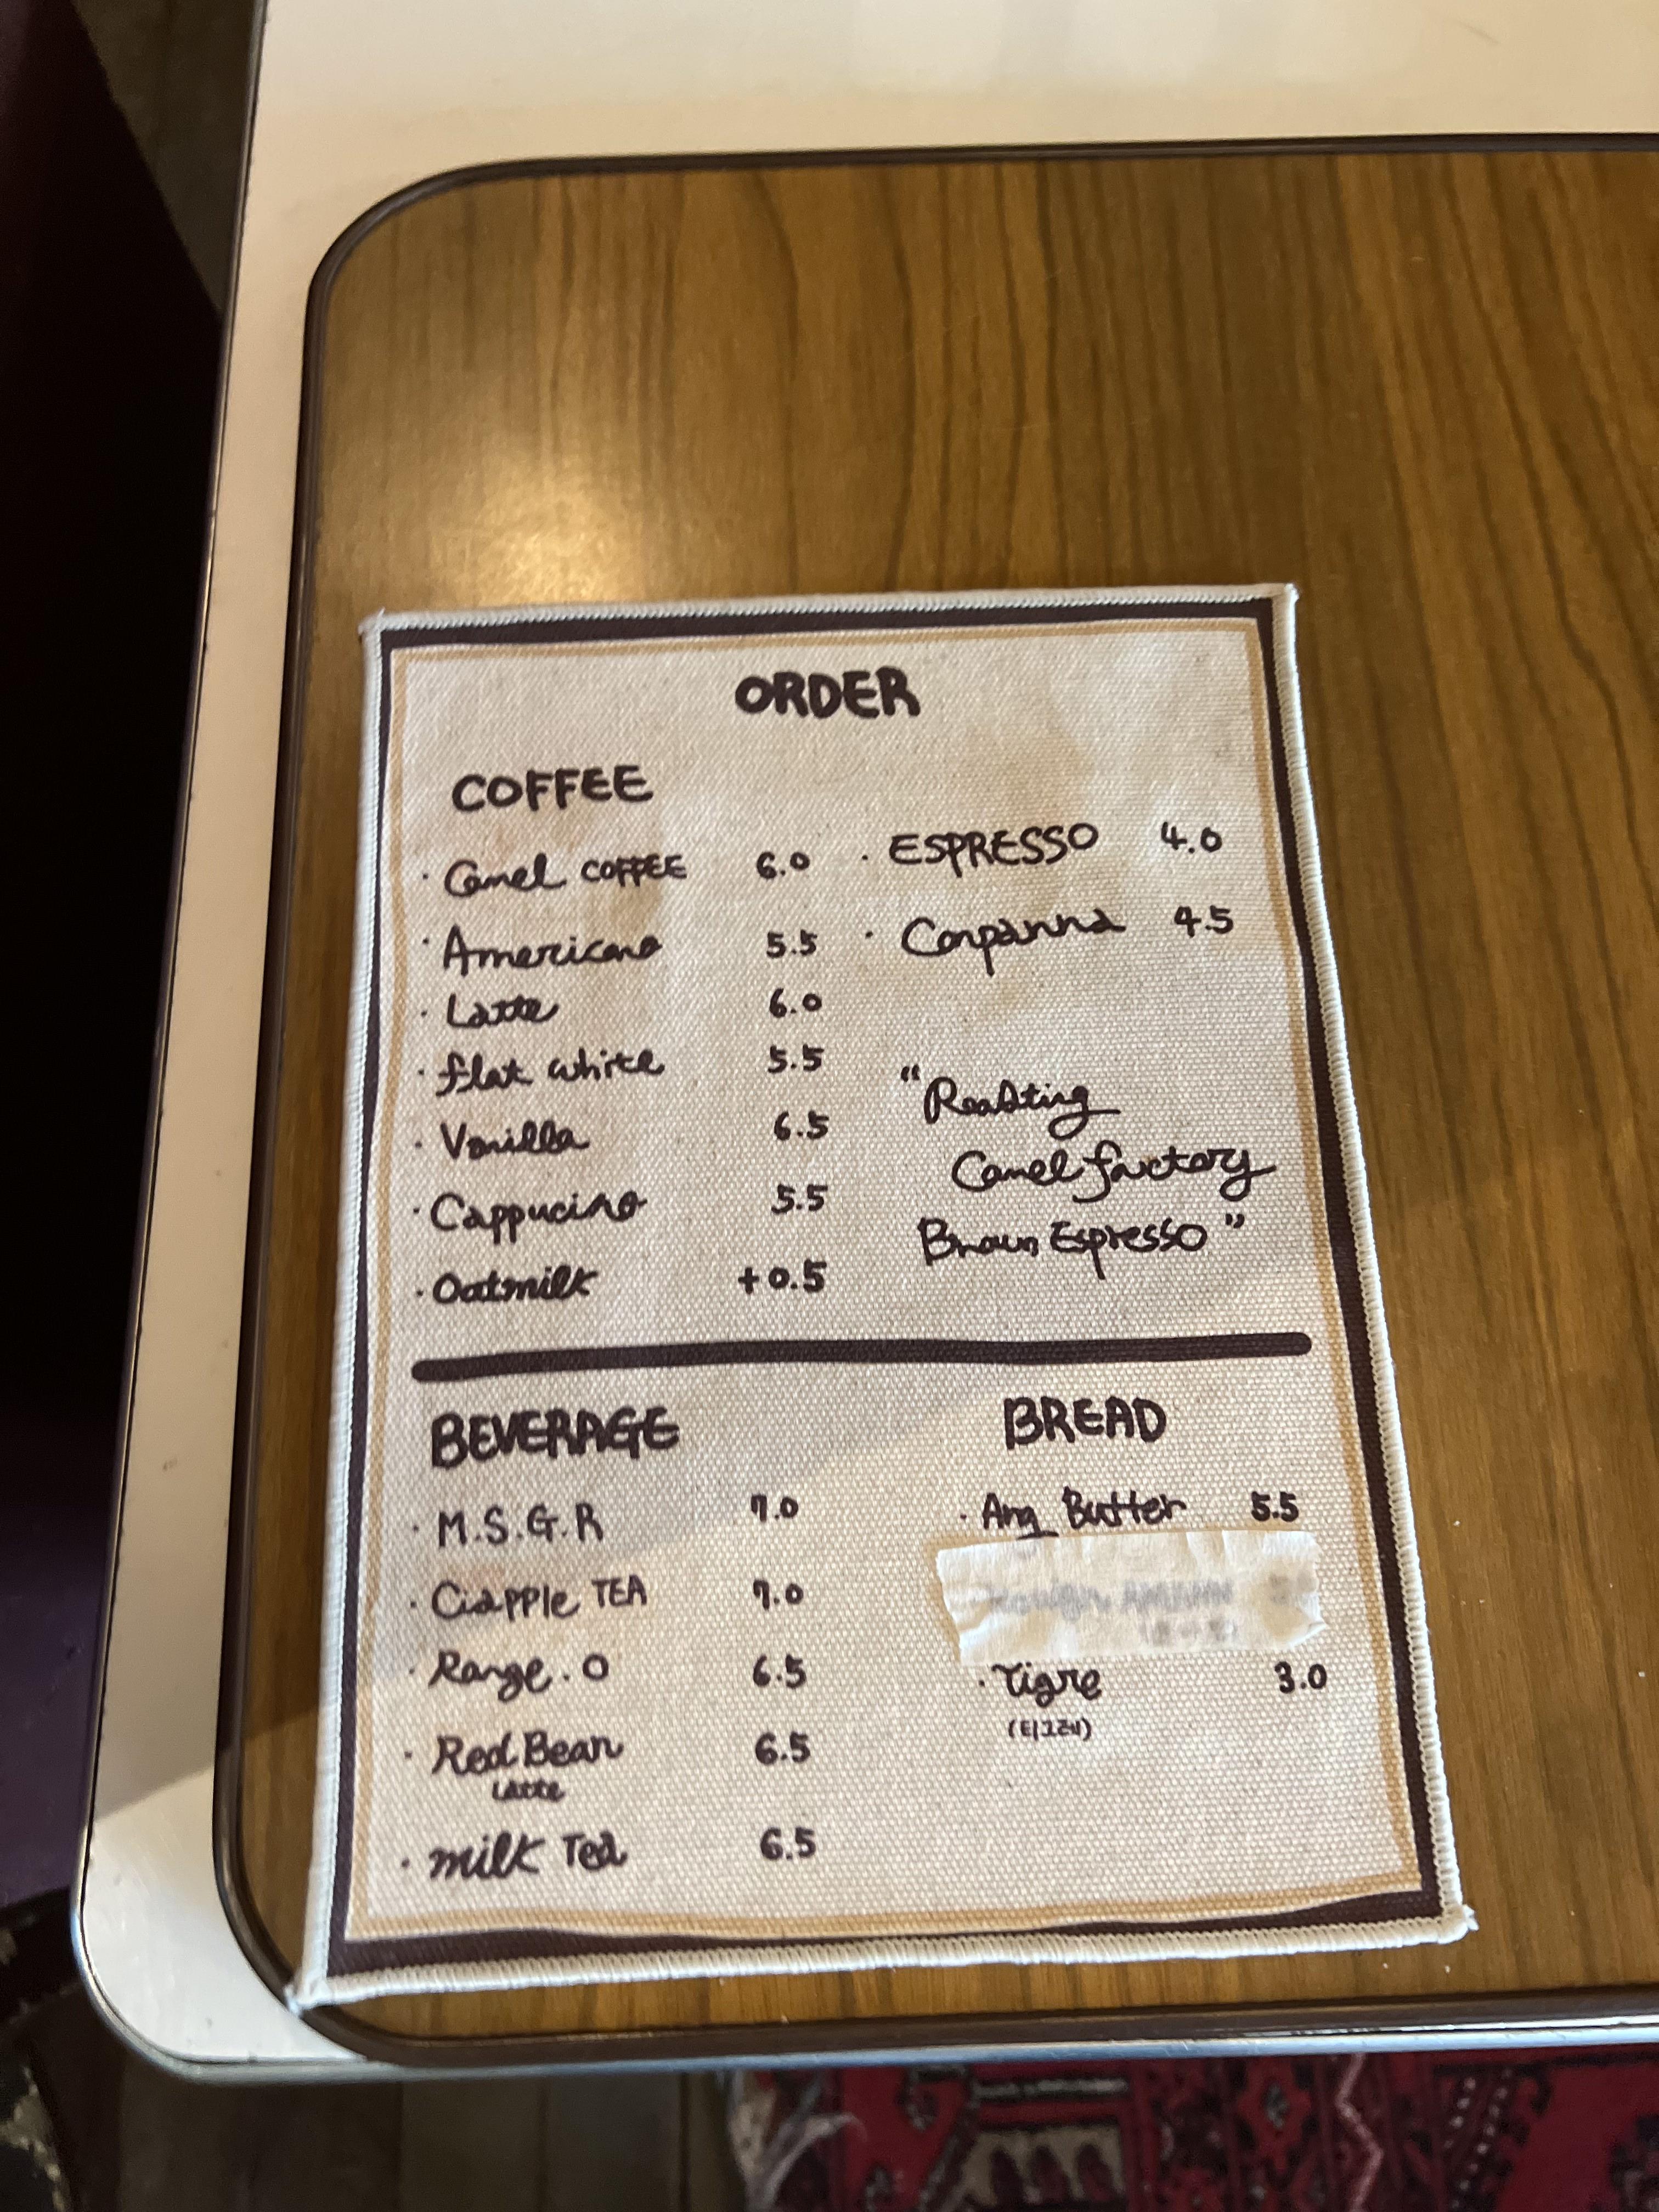 ORDER
COFFEE
· Camel COFFEE 6.0
· Americano 5.5
· Latte 6.0
· flat white 5.5
· Vanilla 6.5
· Cappucino 5.5
· Oatmilk +0.5
· ESPRESSO 4.0
· Conpanna 4.5
"Roasting
Camel factory
Brown Espresso"
BEVERAGE
· M.S.G.R 7.0
· Ciapple TEA 7.0
· Range.O 6.5
· Red Bean 6.5
Latte
· milk Tea 6.5
BREAD
· Ang Butter 5.5
· Tigre 3.0
(티그레)